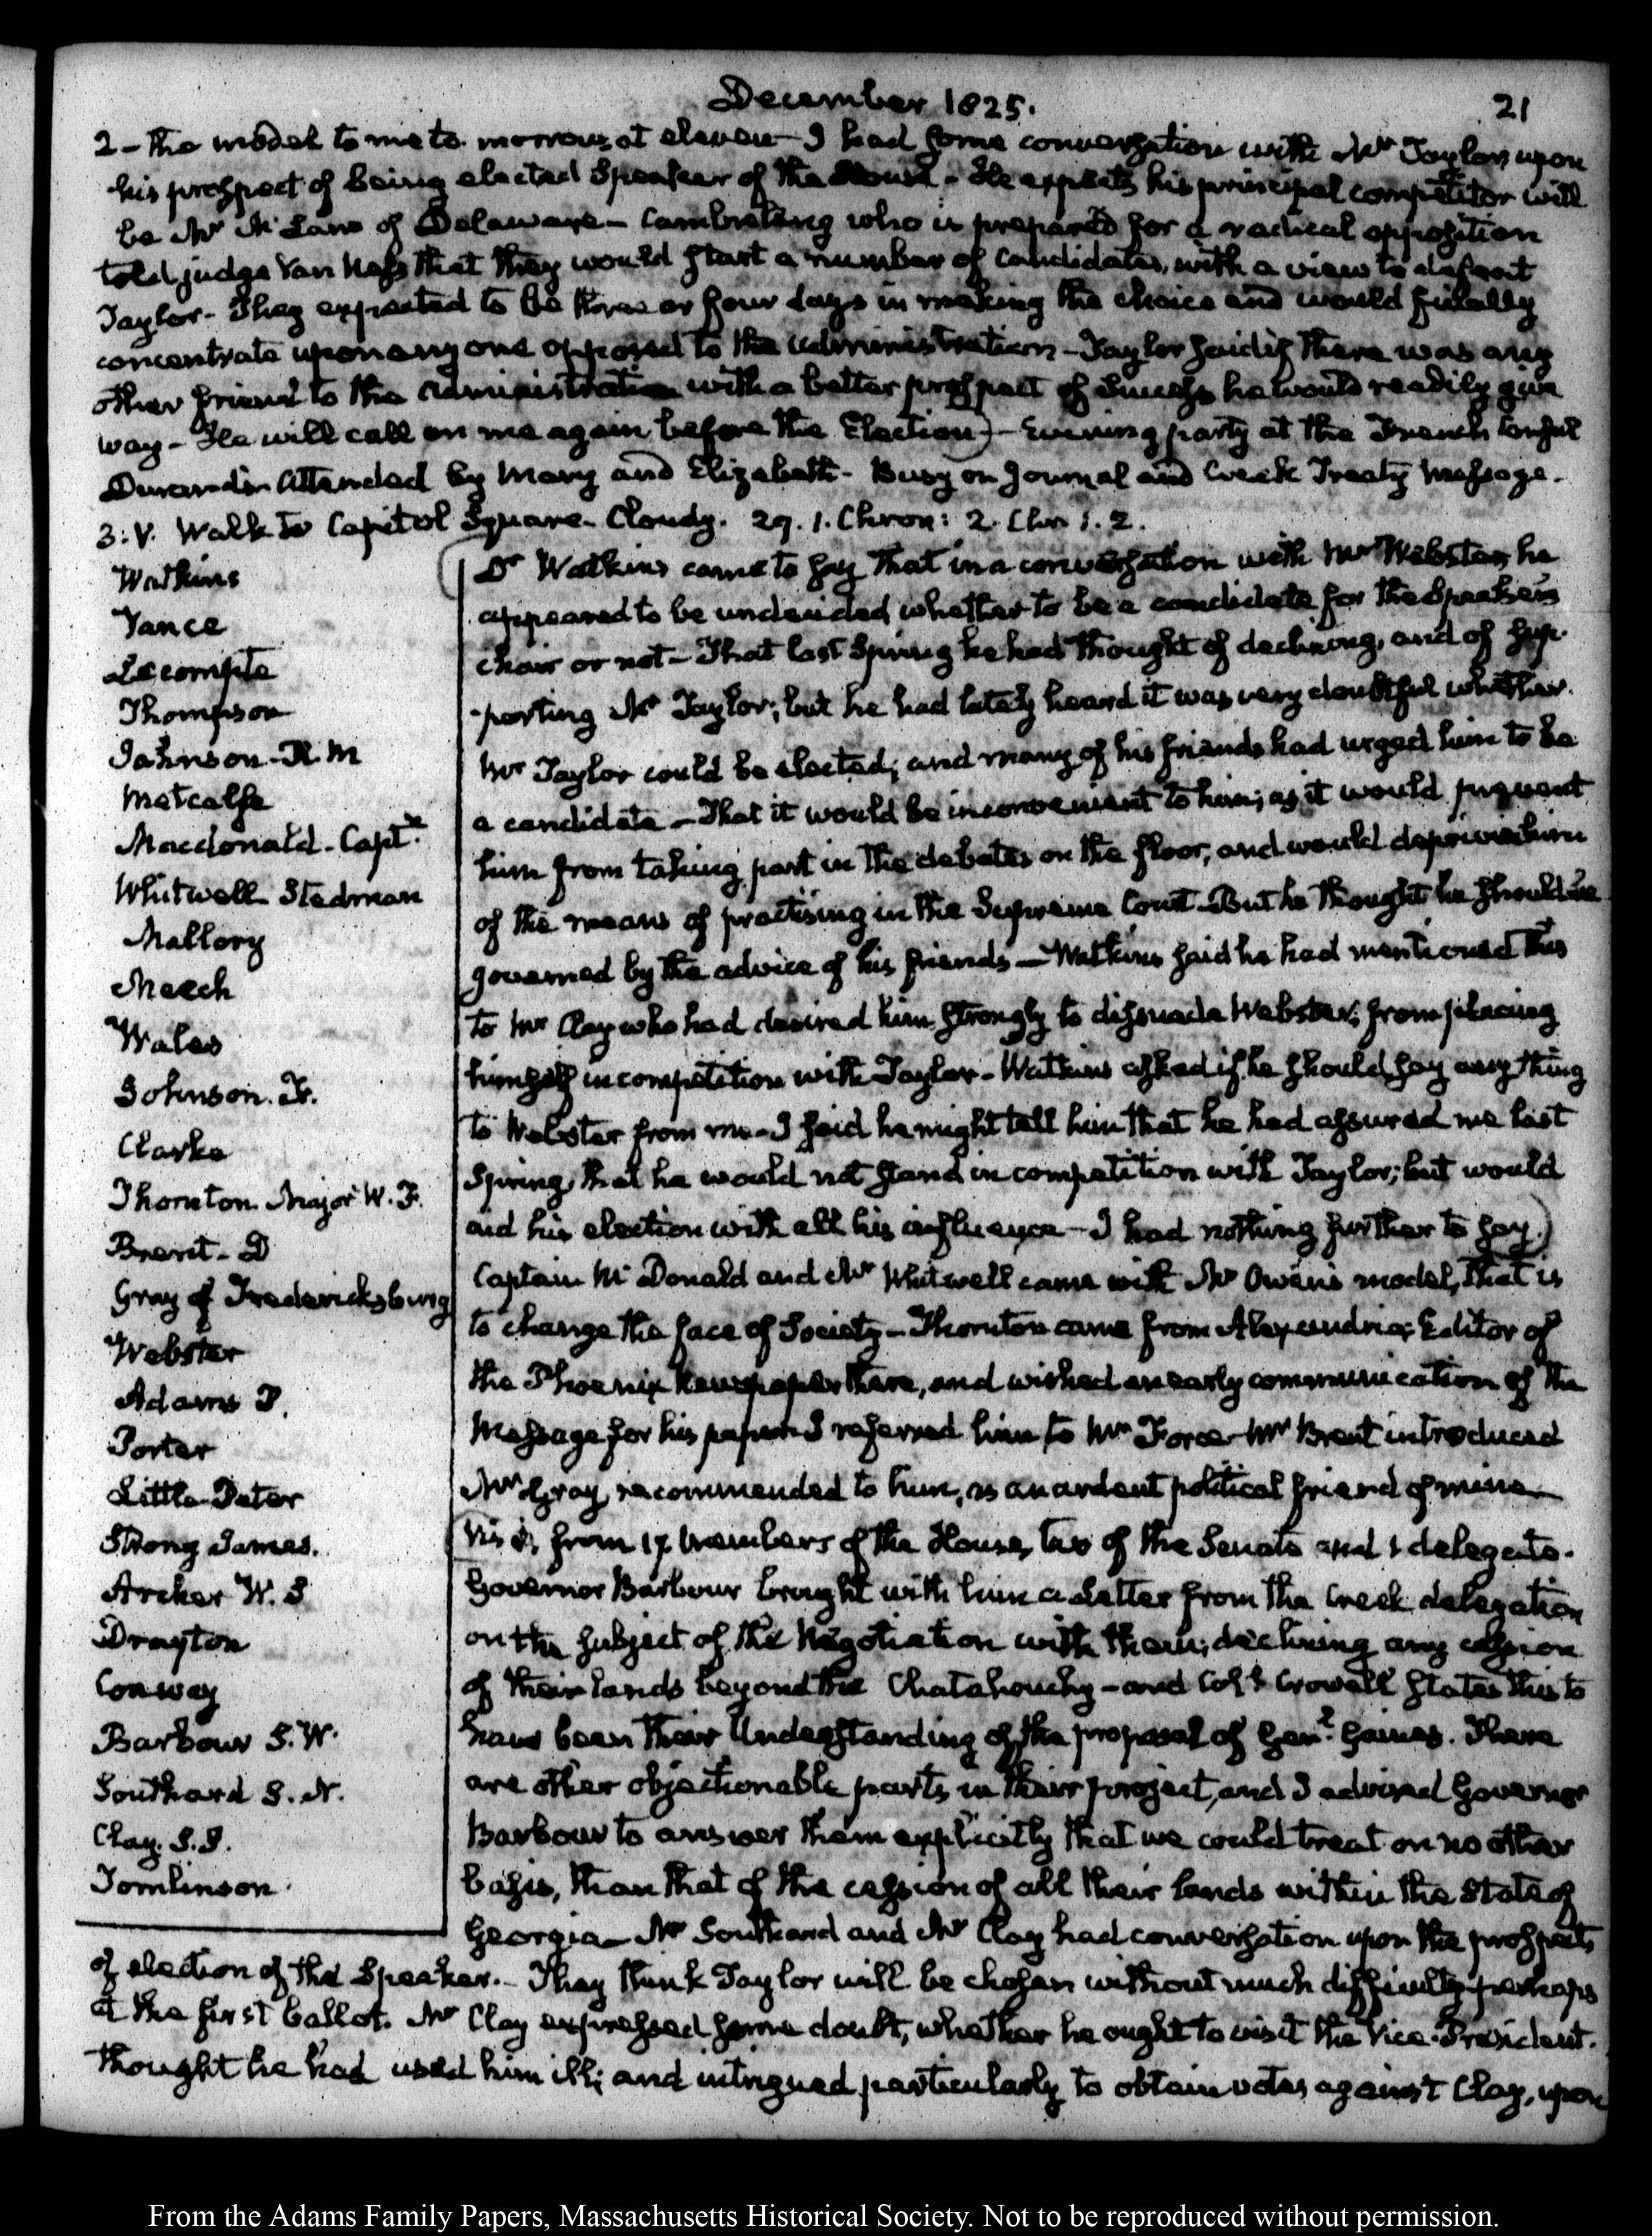 December 1825.
21
2 - the model to me to morrow at eleven - I had some conversation with Mr Taylor, upon
his prospect of being elected Speaker of the House - He expects his principal competitor will
be Mr McLane of Delaware - Cambreleng who is prepared for a radical opposition
told judge Van Ness that they would start a number of Candidates, with a view to defeat
Taylor - They expected to be three or four days in making the choice and would finally
concentrate upon any one opposed to the administration - Taylor said if there was any
other friend to the administration with a better prospect of success he would readily give
way - He will call on me again before the Election) - Evening party at the French Consul
Durand's attended by Mary and Elizabeth - Busy on Journal and Creek Treaty Message.
3: V. Walk to Capitol Square - Cloudy. 29. 1. Chron: 2 Chr 1. 2.
Watkins
Vance
Lecompte
Thompson
Johnson - R. M
Metcalfe
Macdonald - Captn
Whitwell Stedman
Mallory
Meech
Wales
Johnson. F.
Clarke
Thornton Major W. F.
Brent - D
Gray of Fredericksburg
Webster
Adams P.
Porter
Little Peter
Strong James.
Archer W. S
Drayton
Conway
Barbour S. W.
Southard S. N.
Clay. S. S.
Tomlinson
(Dr Watkins came to say that in a conversation with Mr Webster, he
appeared to be undecided whether to be a candidate for the Speaker's
chair or not - That last Spring he had thought of declining, and of sup-
-porting Mr Taylor; but he had lately heard it was very doubtful whether
Mr Taylor could be elected; and many of his friends had urged him to be
a candidate - That it would be inconvenient to him; as it would prevent
him from taking part in the debates on the floor, and would deprive him
of the means of practising in the Supreme Court - But he thought he should be
governed by the advice of his friends - Watkins said he had mentioned this
to Mr Clay who had desired him strongly to dissuade Webster; from placing
himself in competition with Taylor - Watkins asked if he should say any thing
to Webster from me - I said he might tell him that he had assured me last
Spring, that he would not stand in competition with Taylor; but would
aid his election with all his influence - I had nothing further to say.)
Captain McDonald and Mr Whitwell came with Mr Owen's model, that is
to change the face of Society - Thornton came from Alexandria; Editor of
the Phoenix Newspaper there, and wished an early communication of the
Message for his paper - I referred him to Mr Force - Mr Brent introduced
Mr Gray, recommended to him, as an ardent political friend of mine -
Vis. from 17 members of the House, two of the Senate and 1 delegate.
Governor Barbour brought with him a Letter from the Creek delegation
on the subject of the Negotiation with them; declining any cession
of their lands beyond the Chatahouchy - and Coll Crowell states this to
have been their Understanding of the proposal of Genl Gaines. There
are other objectionable parts in their project, and I advised Governor
Barbour to answer them explicitly that we could treat on no other
basis, than that of the cession of all their lands within the State of
Georgia - Mr Southard and Mr Clay had conversation upon the prospects
of election of the Speaker. - They think Taylor will be chosen without much difficulty; perhaps
at the first ballot. Mr Clay expressed some doubt, whether he ought to visit the Vice-President.
thought he had used him ill; and intrigued particularly to obtain votes against Clay, upon
From the Adams Family Papers, Massachusetts Historical Society. Not to be reproduced without permission.